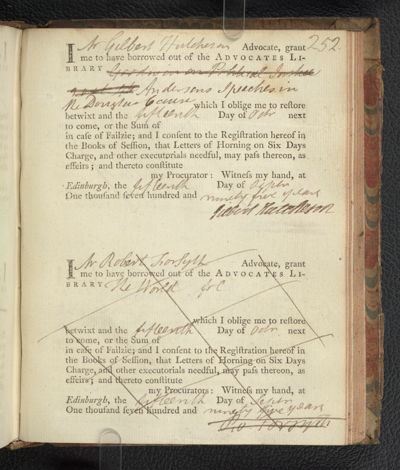 252.
I Mr Gilbert Hutcheson Advocate, grant
me to have borrowed out of the ADVOCATES LI-
BRARY Godwin on Political Justice
Andersons Speeches in
the Douglas Cause which I oblige me to restore
betwixt and the fifteenth Day of Octr next
to come, or the Sum of
in case of Failzie; and I consent to the Registration hereof in
the Books of Session, that Letters of Horning on Six Days
Charge, and other executorials needful, may pass thereon, as
effeirs; and thereto constitute
my Procurator: Witness my hand, at
Edinburgh, the fifteenth Day of Septr
One thousand seven hundred and ninety five years
Gilbert Hutcheson
I Mr Robert Forsyth Advocate, grant
me to have borrowed out of the ADVOCATES LI-
BRARY The World &c
which I oblige me to restore
betwixt and the fifteenth Day of Octr next
to come, or the Sum of
in case of Failzie; and I consent to the Registration hereof in
the Books of Session, that Letters of Horning on Six Days
Charge, and other executorials needful, may pass thereon, as
effeirs; and thereto constitute
my Procurators: Witness my hand, at
Edinburgh, the fifteenth Day of Septr
One thousand seven hundred and ninety five years
Ro Forsyth